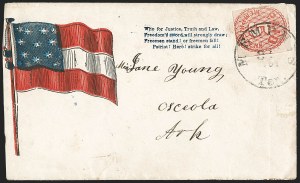 Who for Justice, Truth and Law,
Freedom's sword will strongly draw;
Freeman stand! or freeman fall!
Patriot! Here! strike for all!
Miss Jane Young,
Osceola
Ark
Ten